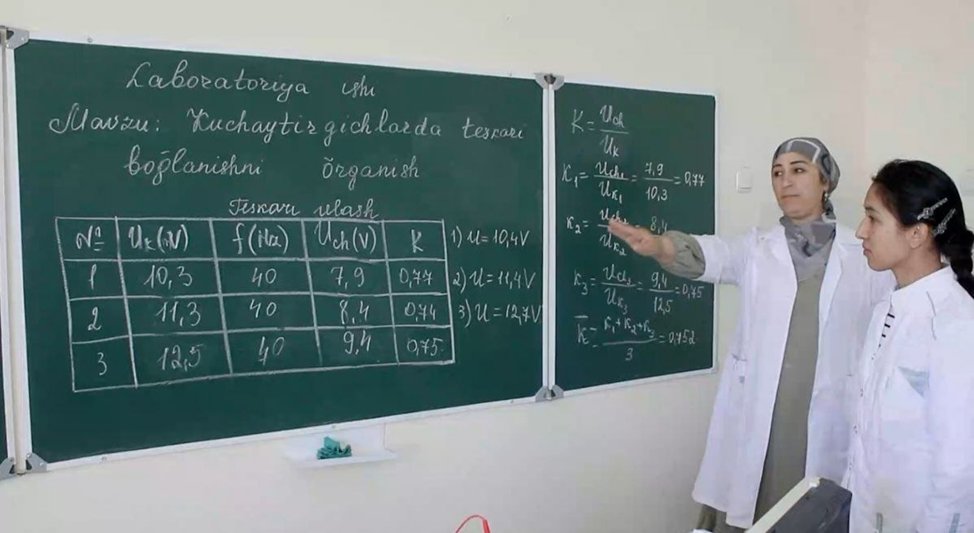 Laboratoriya ishi
Mavzu: Kuchaytirgichlarda teskari
boğlanishni õrganish
Teskari ulash
№ Uk(mV) f(Hz) Uch(V) K
1 10,3 40 7,9 0,77
2 11,3 40 8,4 0,74
3 12,5 40 9,4 0,75
1) U=10,4V
2) U=11,4V
3) U=12,7V
K=Uch/Uk
K1=Uch1/Uk1=7,9/10,3=0,77
K2=Uch2/Uk2=8,4
K3=Uch3/Uk3=9,4/12,5=0,75
K̅=K1+K2+K3/3=0,752